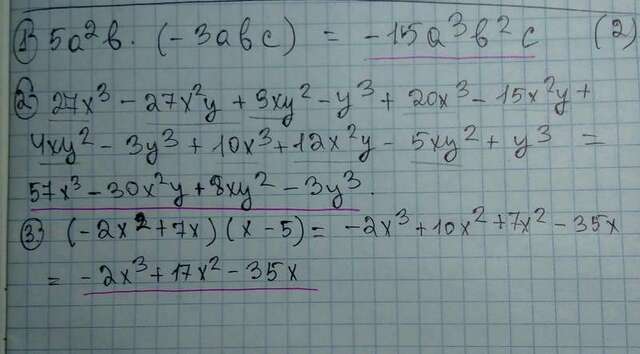 1) 5a²b · (-3abc) = -15a³b²c (2)
2) 27x³ - 27x²y + 9xy² - y³ + 20x³ - 15x²y +
4xy² - 3y³ + 10x³ + 12x²y - 5xy² + y³ =
57x³ - 30x²y + 8xy² - 3y³.
3) (-2x² + 7x)(x - 5) = -2x³ + 10x² + 7x² - 35x
= -2x³ + 17x² - 35x